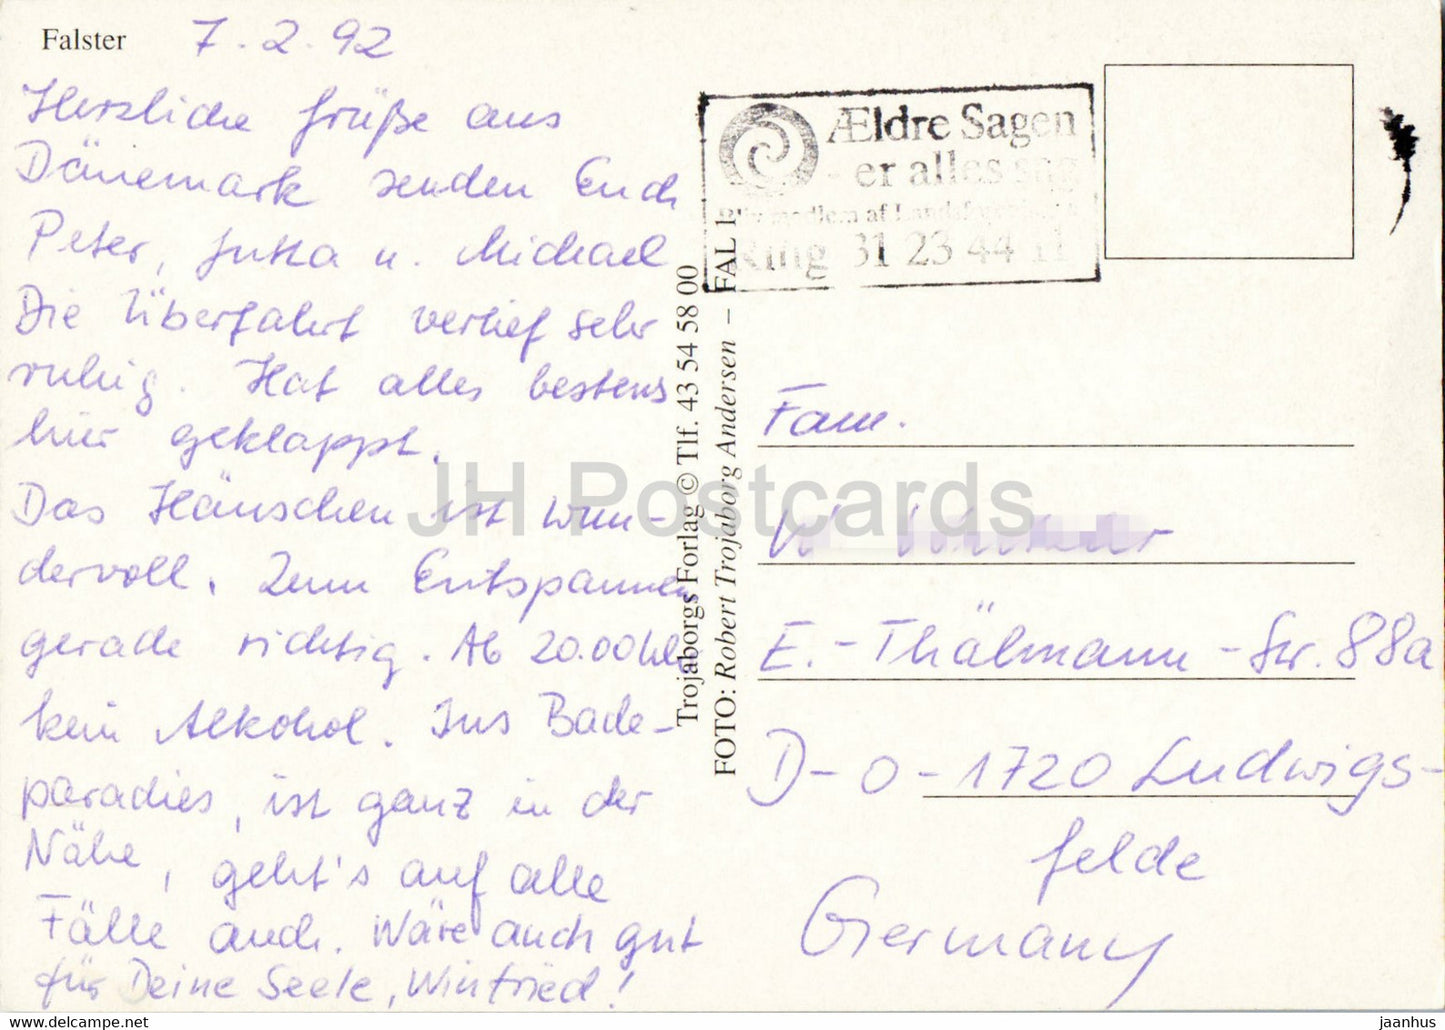 Falster 7.2.92
Herzliche Grüße aus
Dänemark senden Euch
Peter, Jutta u. Michael
Die Überfahrt verlief sehr
ruhig. Hat alles bestens
hier geklappt.
Das Häuschen ist wun-
dervoll. Zum Entspannen
gerade richtig. Ab 20.00 Uhr
kein Alkohol. Ins Bade-
paradies, ist ganz in der
Nähe, geht's auf alle
Fälle auch. Wäre auch gut
für Deine Seele, Winfried!
Trojaborgs Forlag © Tlf. 43 54 58 00
FOTO: Robert Trojaborg Andersen – FAL 1
Ældre Sagen
- er alles sag
Bliv medlem af
Ring 31 23 44 11
Fam.
W
E.-Thälmann-Str. 88a
D-O-1720 Ludwigs-
felde
Germany
JH Postcards
https://www.ebay.com/usr/jaanhus
jaanhus